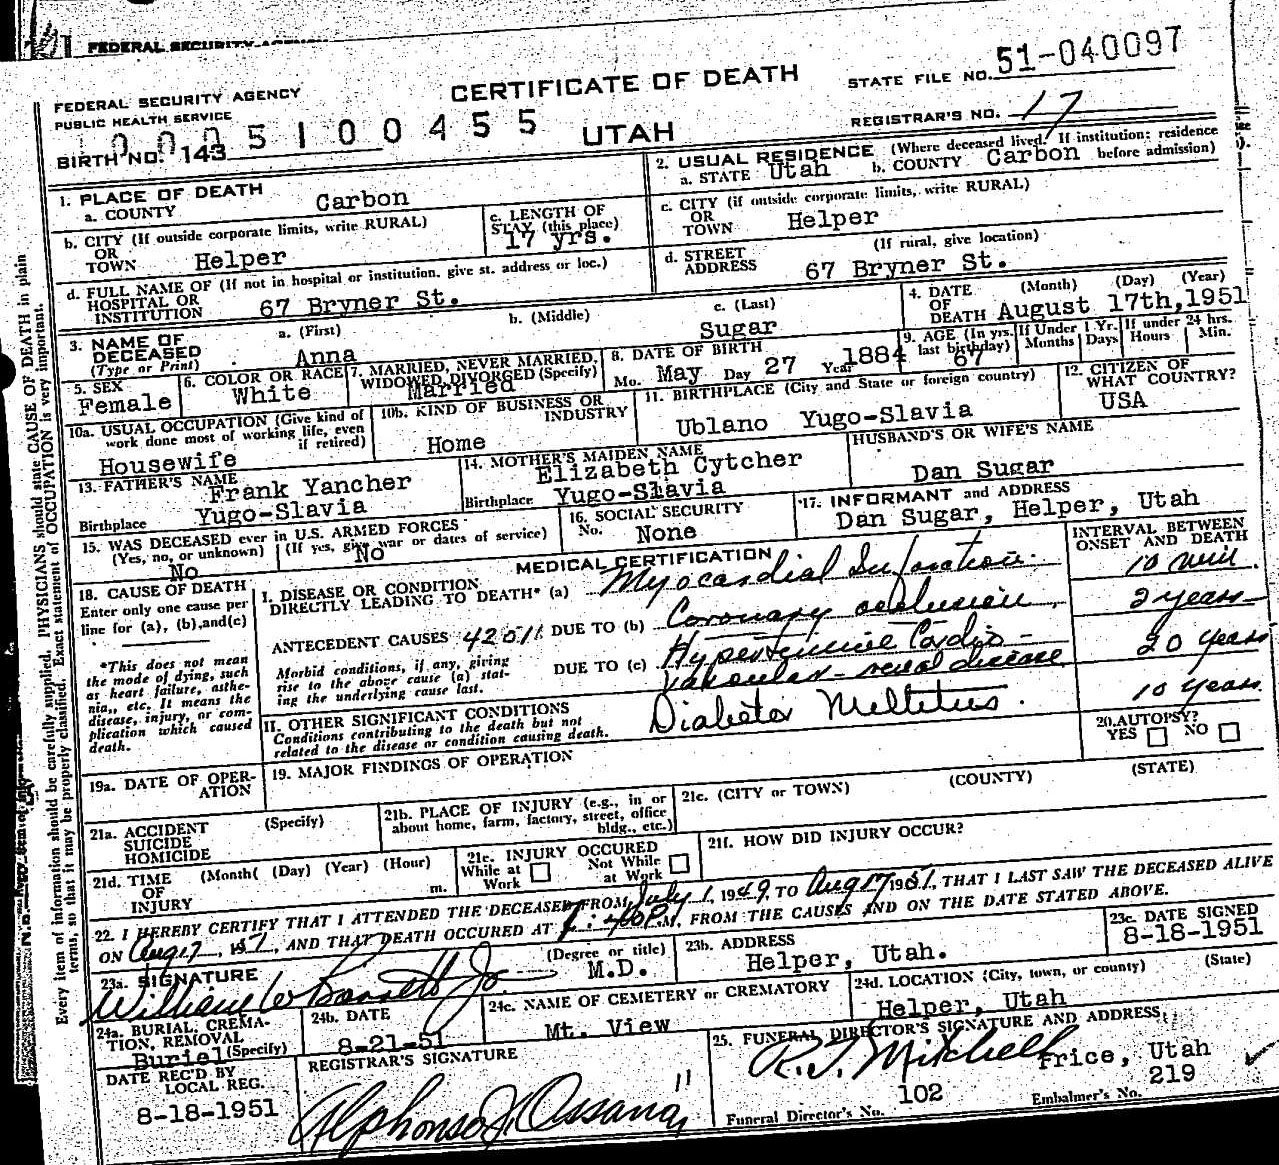 FEDERAL SECURITY AGENCY
CERTIFICATE OF DEATH
STATE FILE NO. 51-040097
FEDERAL SECURITY AGENCY
PUBLIC HEALTH SERVICE
0005100455
UTAH
REGISTRAR'S NO. 17
BIRTH NO. 143
1. PLACE OF DEATH
a. COUNTY Carbon
2. USUAL RESIDENCE (Where deceased lived. If institution: residence before admission)
a. STATE Utah b. COUNTY Carbon
b. CITY (If outside corporate limits, write RURAL)
OR
TOWN Helper
c. LENGTH OF
STAY (this place)
17 yrs.
c. CITY (if outside corporate limits, write RURAL)
OR
TOWN Helper
d. FULL NAME OF (If not in hospital or institution, give st. address or loc.)
HOSPITAL OR
INSTITUTION 67 Bryner St.
d. STREET
ADDRESS
(If rural, give location)
67 Bryner St.
3. NAME OF
DECEASED
(Type or Print)
a. (First)
Anna
b. (Middle)
c. (Last)
Sugar
4. DATE
OF
DEATH
(Month) (Day) (Year)
August 17th, 1951
5. SEX
Female
6. COLOR OR RACE
White
7. MARRIED, NEVER MARRIED,
WIDOWED, DIVORCED (Specify)
Married
8. DATE OF BIRTH
Mo. May Day 27 Year 1884
9. AGE (In yrs.
last birthday)
67
If Under 1 Yr.
Months Days
If under 24 hrs.
Hours Min.
10a. USUAL OCCUPATION (Give kind of
work done most of working life, even
if retired)
Housewife
10b. KIND OF BUSINESS OR
INDUSTRY
Home
11. BIRTHPLACE (City and State or foreign country)
Ublano Yugo-Slavia
12. CITIZEN OF
WHAT COUNTRY?
USA
13. FATHER'S NAME
Frank Yancher
Birthplace Yugo-Slavia
14. MOTHER'S MAIDEN NAME
Elizabeth Cytcher
Birthplace Yugo-Slavia
HUSBAND'S OR WIFE'S NAME
Dan Sugar
15. WAS DECEASED ever in U.S. ARMED FORCES
(Yes, no, or unknown) (If yes, give war or dates of service)
No No
16. SOCIAL SECURITY
No. None
17. INFORMANT and ADDRESS
Dan Sugar, Helper, Utah
MEDICAL CERTIFICATION
INTERVAL BETWEEN
ONSET AND DEATH
18. CAUSE OF DEATH
Enter only one cause per
line for (a), (b), and(c)
*This does not mean
the mode of dying, such
as heart failure, asthe-
nia,, etc. It means the
disease, injury, or com-
plication which caused
death.
I. DISEASE OR CONDITION
DIRECTLY LEADING TO DEATH* (a) Myocardial Infarction 10 min
ANTECEDENT CAUSES DUE TO (b) Coronary occlusion 2 years
Morbid conditions, if any, giving
rise to the above cause (a) stat-
ing the underlying cause last.
DUE TO (c) Hypertensive Cardio-
vascular-renal disease 20 years
II. OTHER SIGNIFICANT CONDITIONS
Conditions contributing to the death but not
related to the disease or condition causing death.
Diabetes Mellitus. 10 years
20. AUTOPSY?
YES NO
19a. DATE OF OPER-
ATION
19. MAJOR FINDINGS OF OPERATION
21a. ACCIDENT
SUICIDE
HOMICIDE
(Specify)
21b. PLACE OF INJURY (e.g., in or
about home, farm, factory, street, office
bldg., etc.)
21c. (CITY or TOWN) (COUNTY) (STATE)
21d. TIME
OF
INJURY
(Month( (Day) (Year) (Hour)
m.
21e. INJURY OCCURED
While at Work Not While at Work
21f. HOW DID INJURY OCCUR?
22. I HEREBY CERTIFY THAT I ATTENDED THE DECEASED FROM July 1, 1949, TO Aug 17 1951, THAT I LAST SAW THE DECEASED ALIVE
ON Aug 17 1951, AND THAT DEATH OCCURED AT :40P.M, FROM THE CAUSES AND ON THE DATE STATED ABOVE.
23a. SIGNATURE
William W Barrett Jr.
(Degree or title)
M.D.
23b. ADDRESS
Helper, Utah.
23c. DATE SIGNED
8-18-1951
24a. BURIAL, CREMA-
TION, REMOVAL
(Specify)
Buriel
24b. DATE
8-21-51
24c. NAME OF CEMETERY or CREMATORY
Mt. View
24d. LOCATION (City, town, or county) (State)
Helper, Utah
DATE REC'D BY
LOCAL REG.
8-18-1951
REGISTRAR'S SIGNATURE
Alphonso J. Ossana
25. FUNERAL DIRECTOR'S SIGNATURE AND ADDRESS
R. J. Mitchell Price, Utah
102 219
Funeral Director's No. Embalmer's No.
Every item of information should be carefully supplied. PHYSICIANS should state CAUSE OF DEATH in plain
terms, so that it may be properly classified. Exact statement of OCCUPATION is very important.